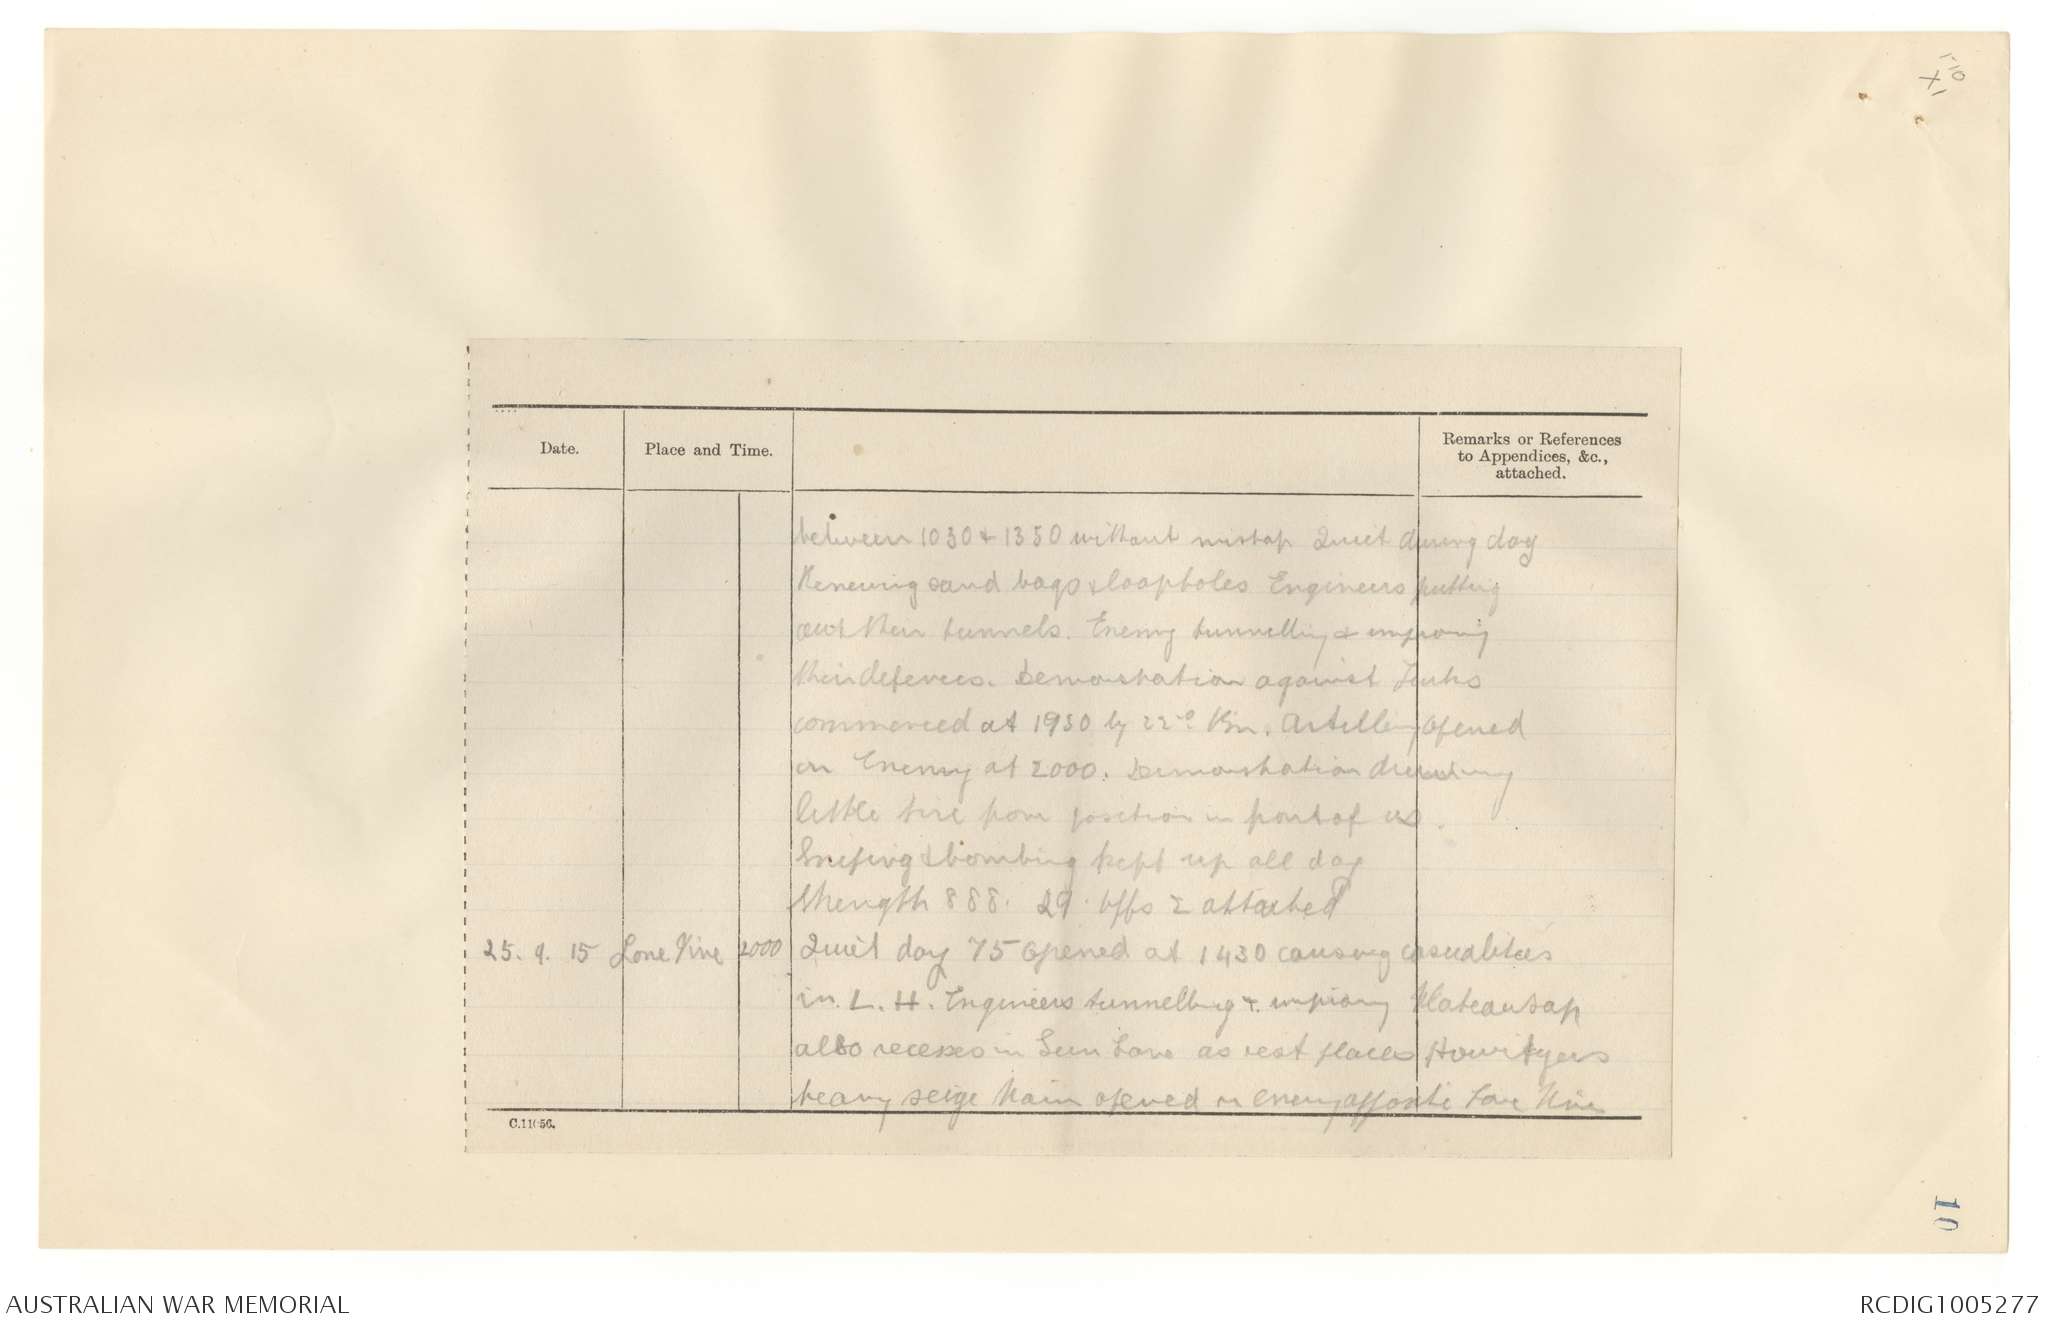 Date.
Place and Time.
Remarks or References
to Appendices, &c.,
attached.
between 1030 & 1350 without mishap Quiet during day
Renewing sand bags & loopholes Engineers putting
out their tunnels. Enemy tunnelling & improving
their defences. Demonstration against Turks
commenced at 1930 by 22nd Bn. Artillery opened
on Enemy at 2000. Demonstration drawing
little fire from position in front of us.
Sniping & bombing kept up all day
Strength 888. 29 Offs 2 attached
25. 9. 15 Lone Pine 2000 Quiet day 75 opened at 1430 causing casualties
in L. H. Engineers tunnelling & improving Plateau Sap
also recesses in Lane as rest places Howitzers
heavy seige opened on enemy opposite Lone Pine
C.11056.
10
AUSTRALIAN WAR MEMORIAL
RCDIG1005277